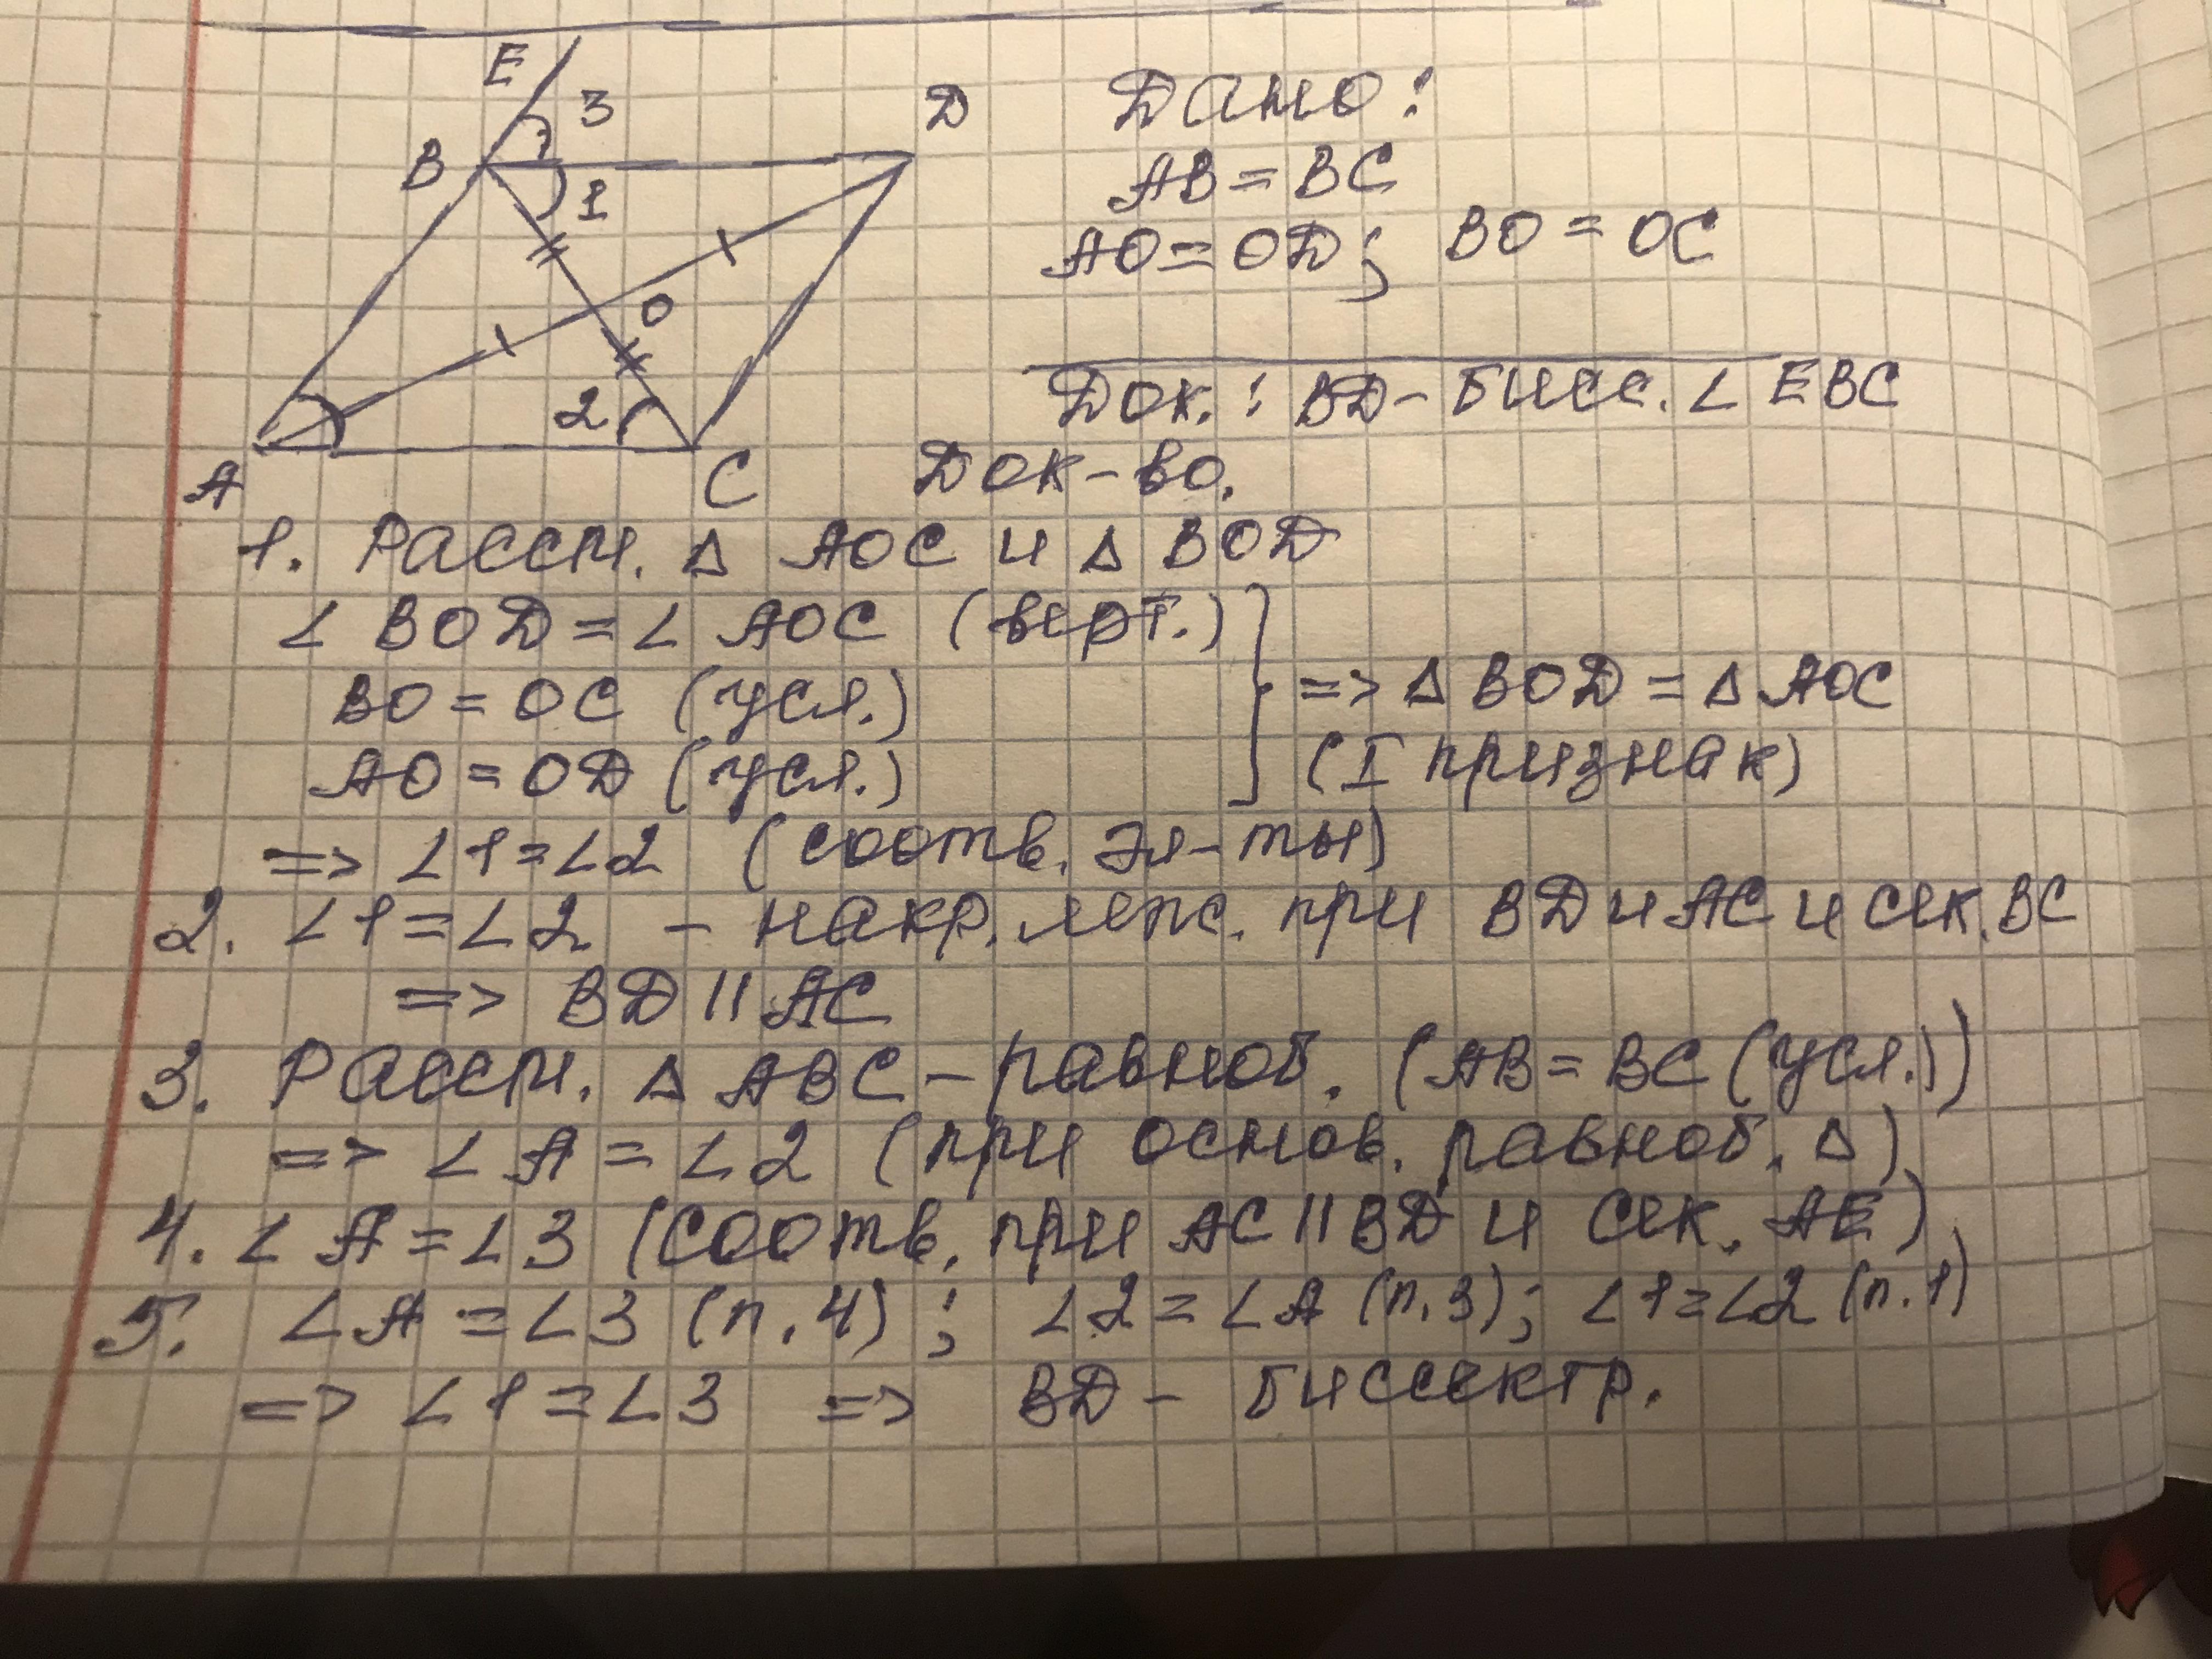 E
3
D
B
1
O
2
A
C
Дано:
AB = BC
AO = OD; BO = OC
Док.: BD - бисс. ∠ EBC
Док-во.
1. Рассм. Δ AOC и Δ BOD
∠ BOD = ∠ AOC (верт.)
BO = OC (усл.)
AO = OD (усл.)
=> Δ BOD = Δ AOC
(I признак)
=> ∠1 = ∠2 (соотв. эл-ты)
2. ∠1 = ∠2 - накр. леж. при BD и AC и сек. BC
=> BD || AC
3. Рассм. Δ ABC - равноб. (AB = BC (усл.))
=> ∠ A = ∠2 (при основ. равноб. Δ)
4. ∠ A = ∠3 (соотв. при AC || BD и сек. AE)
5. ∠ A = ∠3 (п. 4); ∠2 = ∠A (п. 3); ∠1 = ∠2 (п. 1)
=> ∠1 = ∠3 => BD - биссектр.